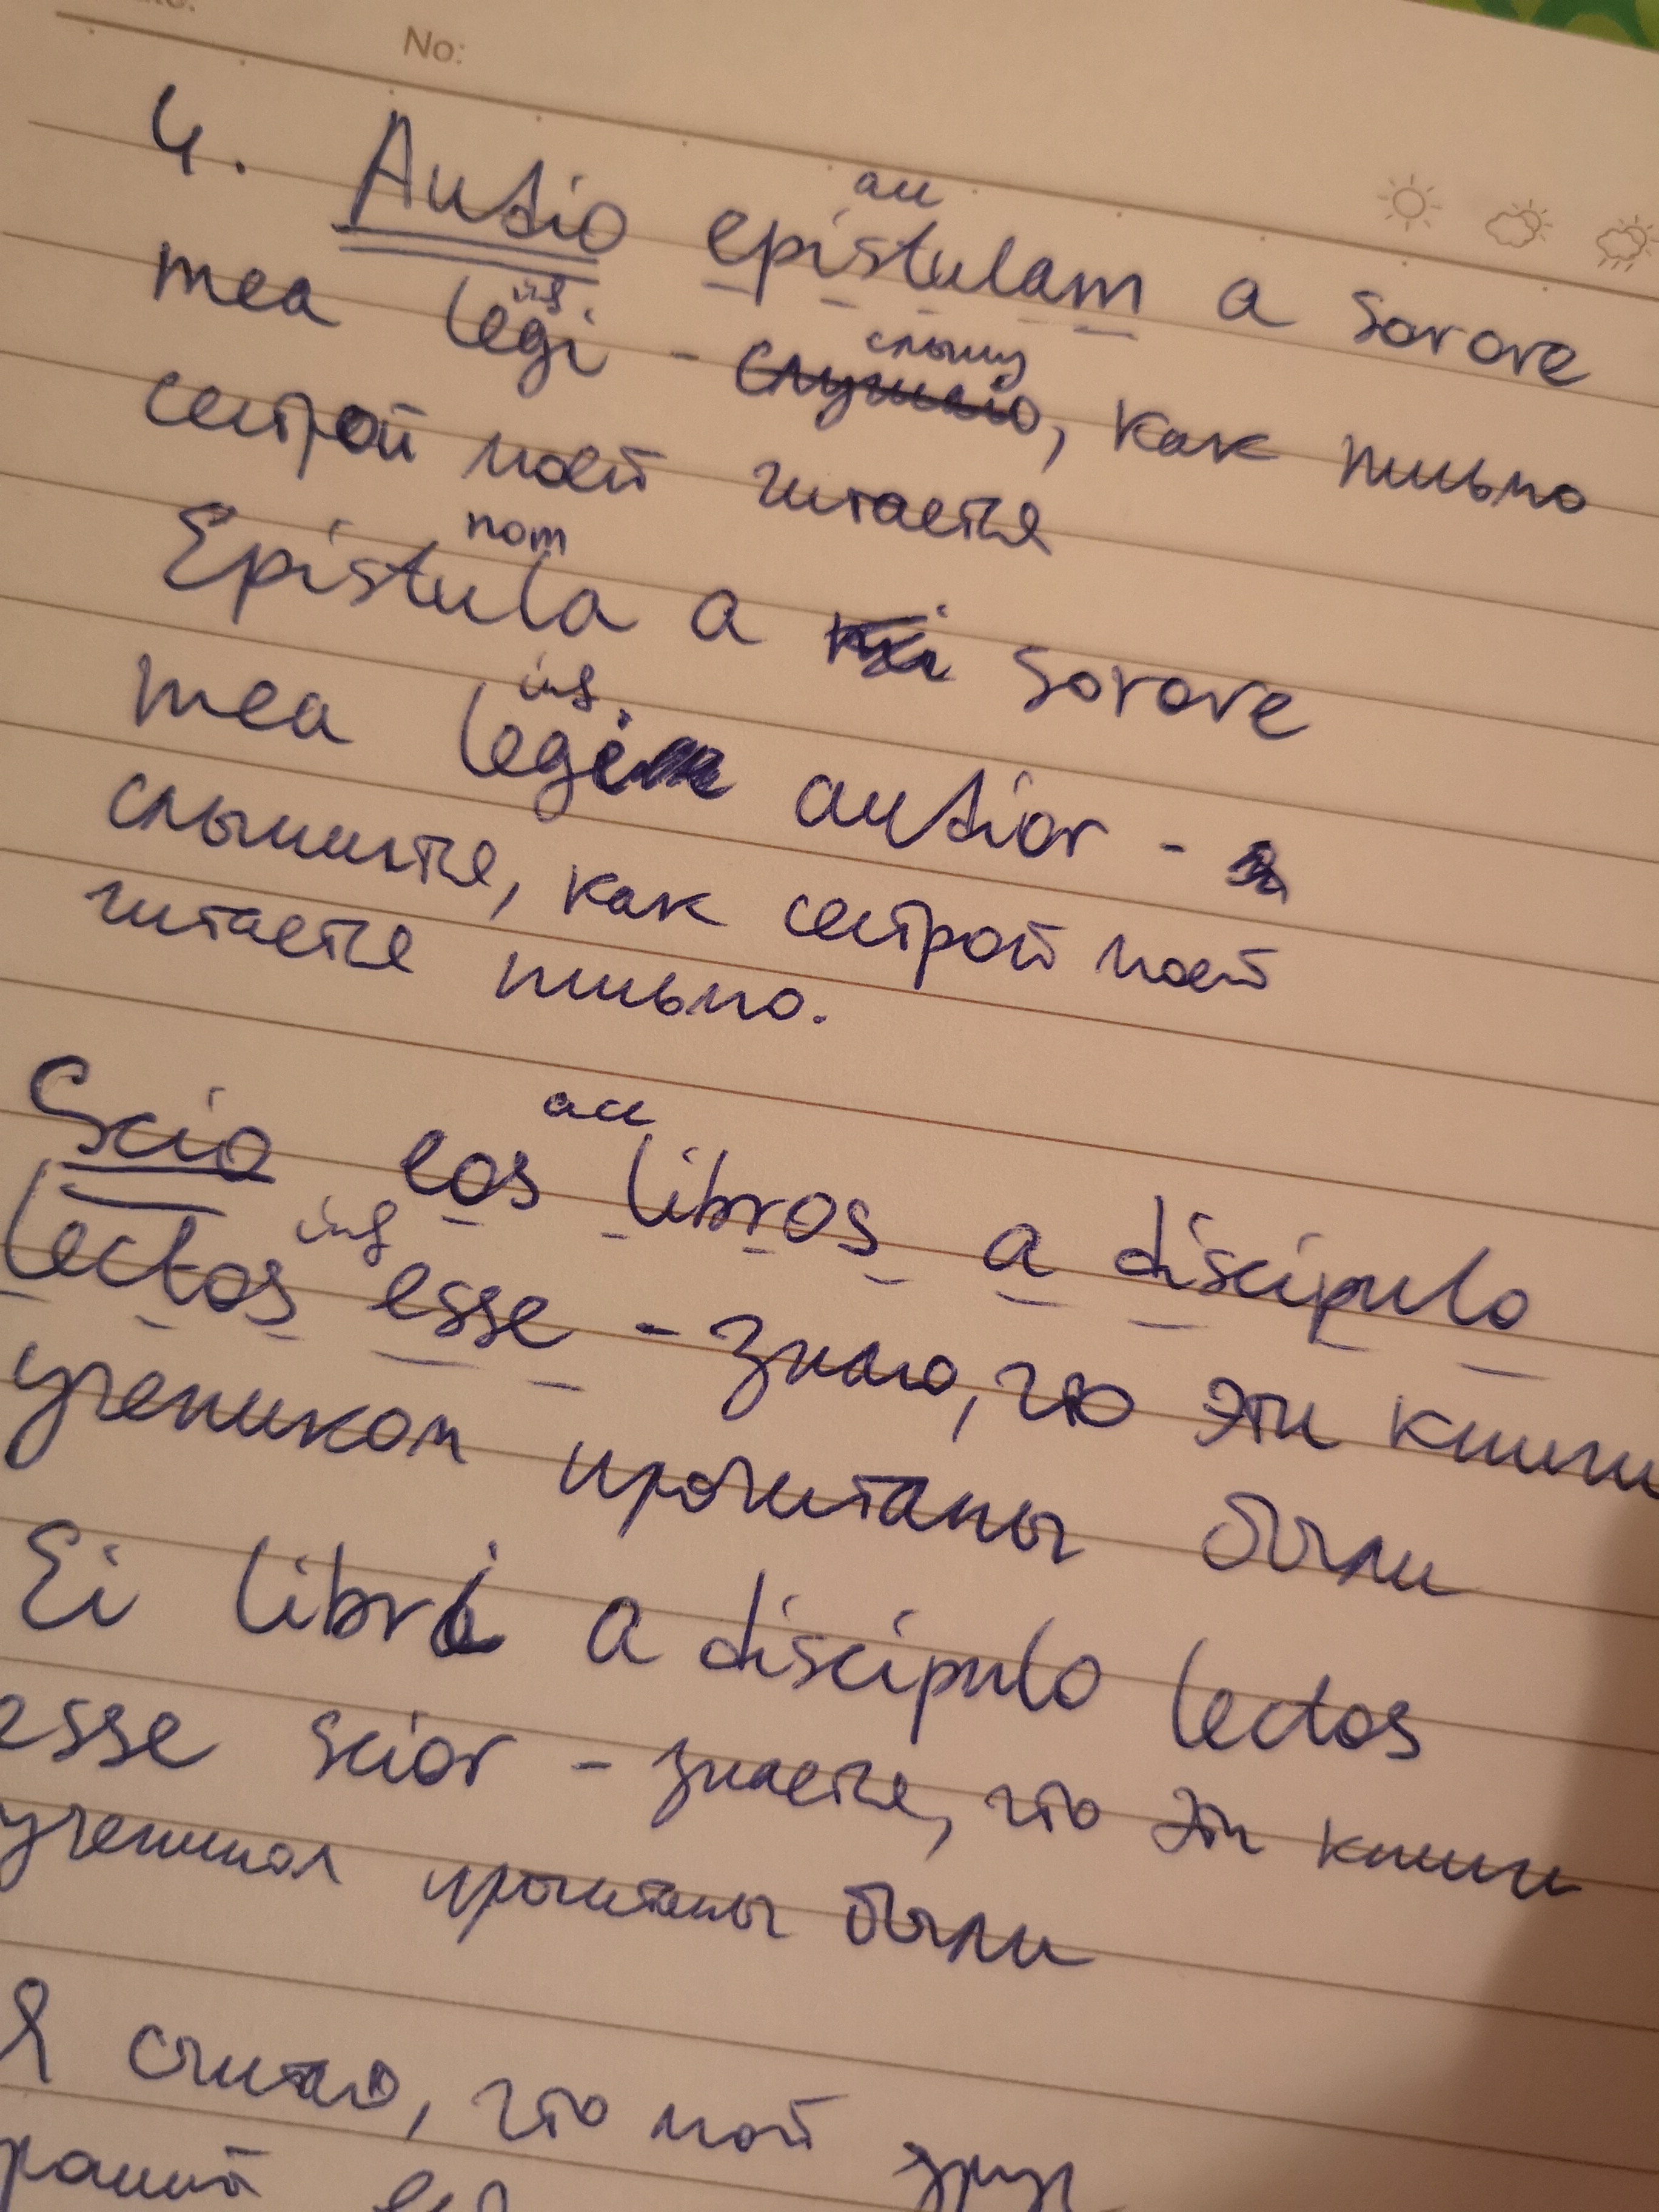 No:
4. Audio epistulam a sorore
acc
mea legi - слышу, как письмо
inf
сестрой моей читается
Epistula a sorore
nom
mea legi audior -
inf.
слышится, как сестрой моей
читается письмо.
Scio eos libros a discipulo
acc
lectos esse - знаю, что эти книги
inf
учеником прочитаны были
Ei libri a discipulo lectos
esse scior - знается, что эти книги
учеником прочитаны были
Я считаю, что мой друг